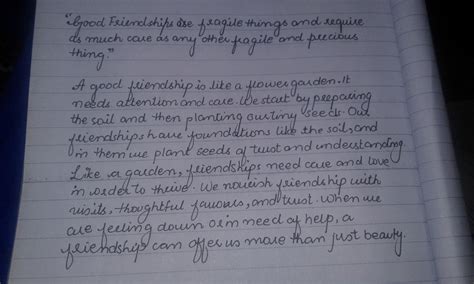 "Good Friendships are fragile things and require
as much care as any other fragile and precious
thing."
A good friendship is like a flower garden. It
needs attention and care. We start by preparing
the soil and then planting our tiny seeds. Our
friendships have foundations like the soil, and
in them we plant seeds of trust and understanding.
Like a garden, friendships need care and love
in order to thrive. We nourish friendship with
visits, thoughtful favours, and trust. When we
are feeling down or in need of help, a
friendship can offer us more than just beauty.